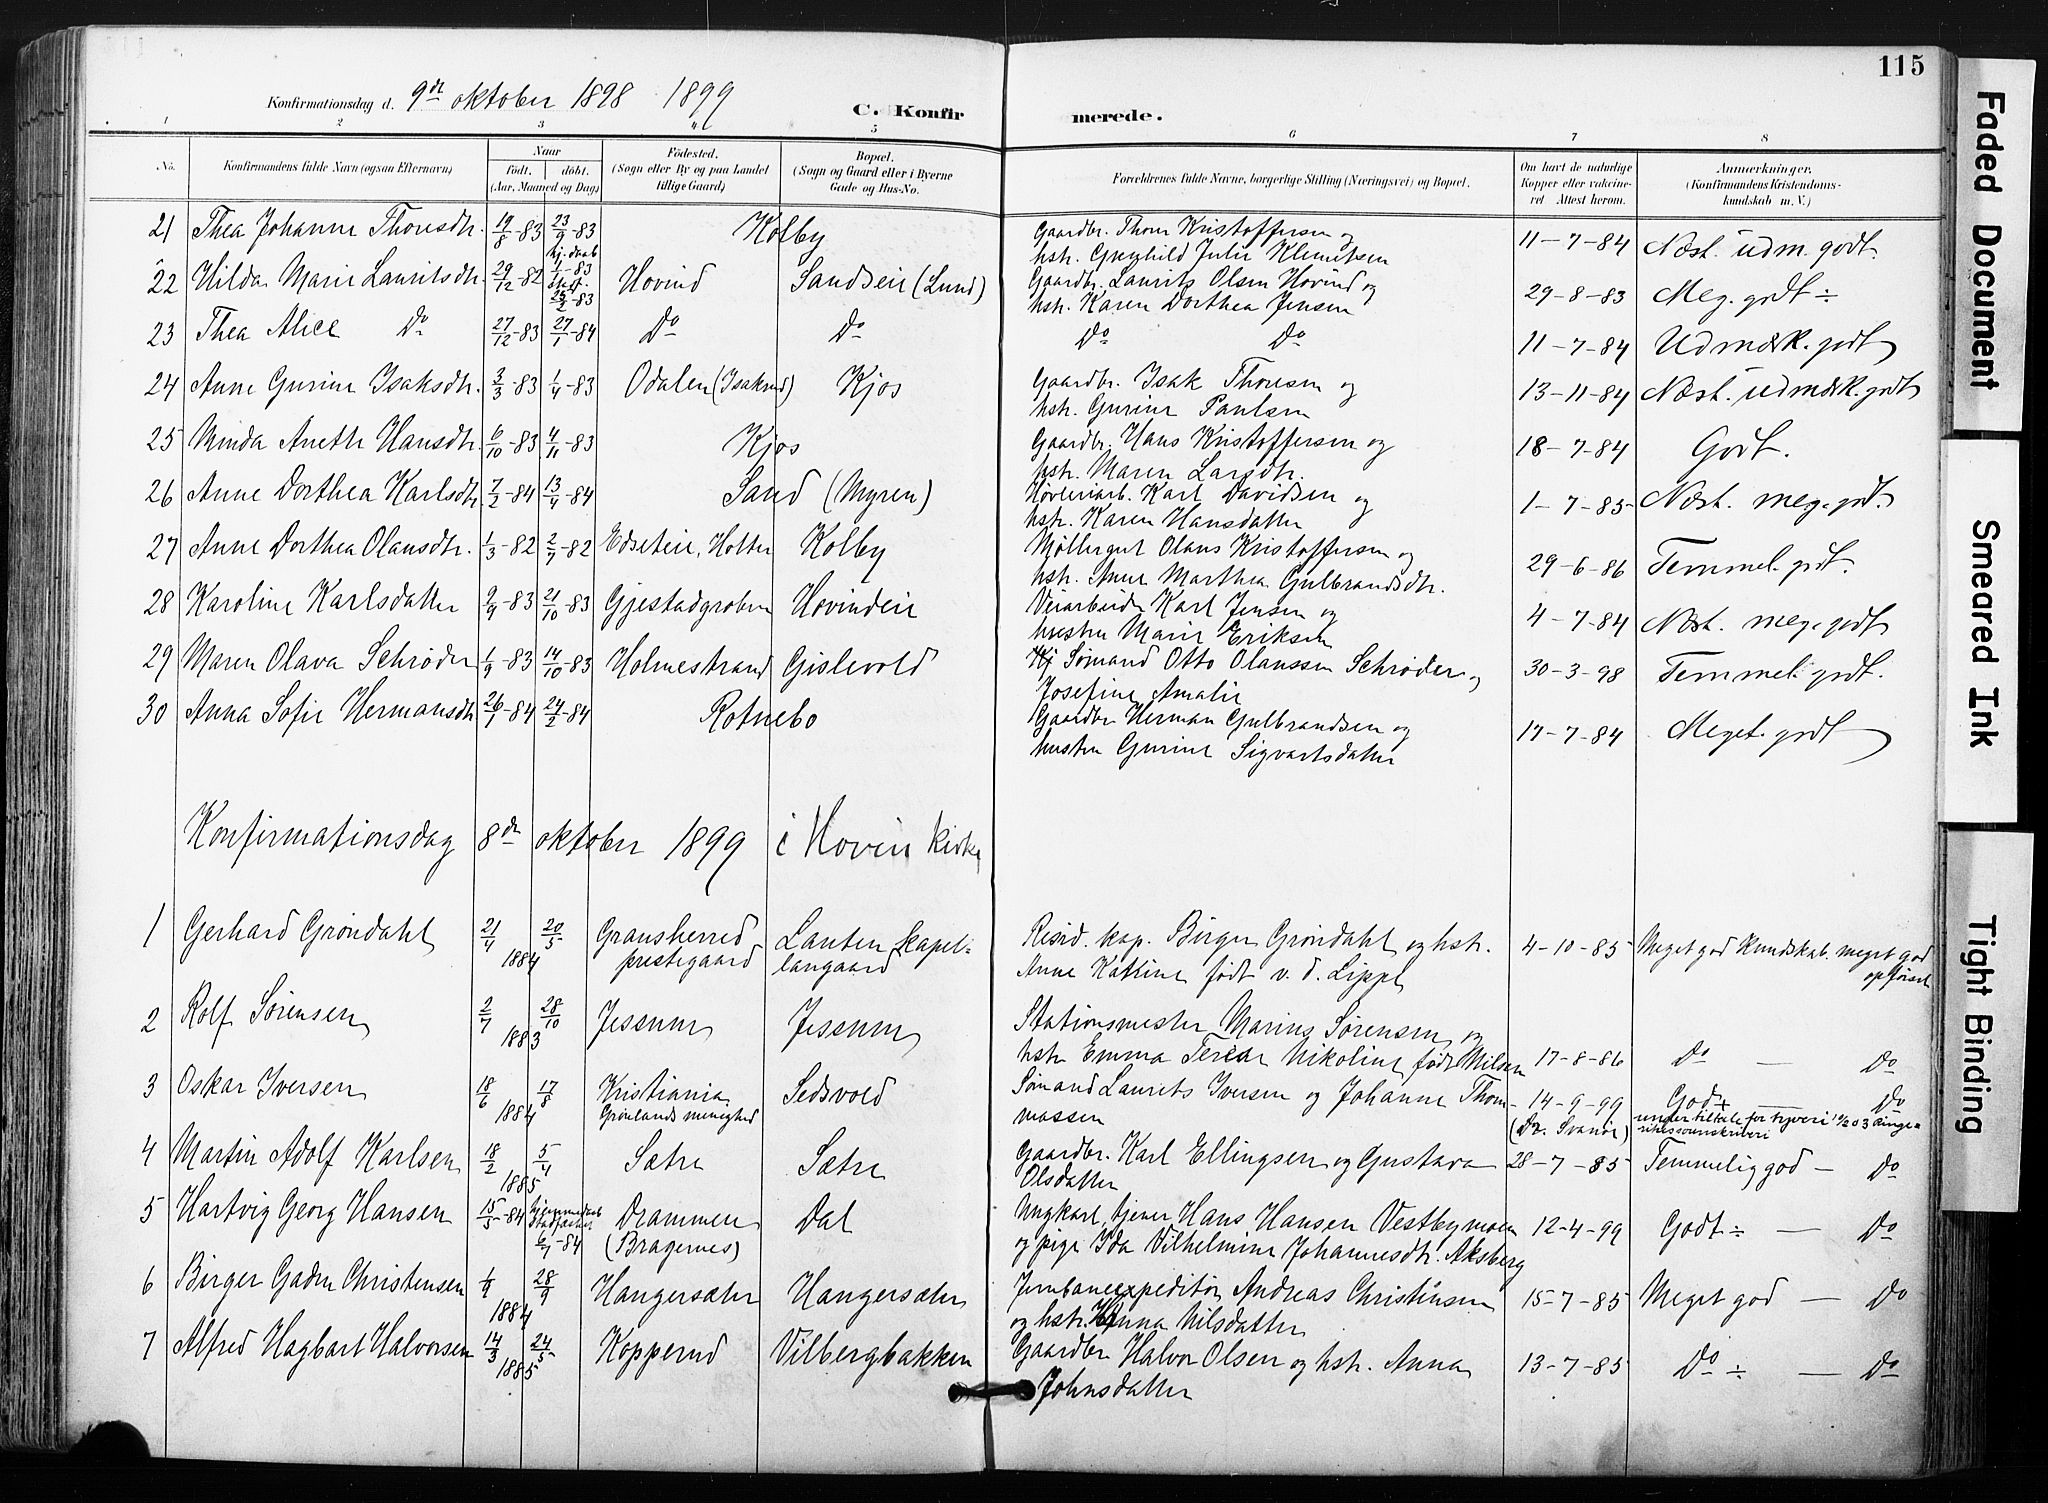 115
Konfirmationsdag d. 9de oktober 1898 1899
C. Konfirmerede.
1 2 3 4 5 6 7 8
No. Konfirmandens fulde Navn (ogsaa Efternavn) Naar født. døbt. (Aar, Maaned og Dag) Fødested. (Sogn eller By og paa Landet tillige Gaard) Bopæl. (Sogn og Gaard eller i Byerne Gade og Hus-No. Forældrenes fulde Navne, borgerlige Stilling (Næringsvei) og Bopæl. Om havt de naturlige Kopper eller vaccineret Attest herom. Anmærkninger. (Konfirmandens Kristendomskundskab m. V.)
21 Thea Johanne Thoresdtr. 19/8-83 23/9-83 Kolby Gaardbr. Thore Kristoffersen og 11-7-84 Næst. udm. godt.
hstr. Julie Klemetsen
22 Hilda Marie Lauritsdtr. 29/12-82 hj. daab 1/1-83 25/2-83 Hovind Sandseie (Lund) Gaardbr. Laurits Olsen Hovind og 29-8-83 Meg. godt ÷
hstr. Karen Dorthea Jensen
23 Thea Alice Do 27/12-83 27/1-84 Do Do Do Do 11-7-84 Udmærk. godt
24 Anne Gurine Isaksdtr. 3/3-83 1/4-83 Odalen (Isakrud) Kjos Gaardbr. Isak Thoresen og 13-11-84 Næst. udmærk. godt
hstr. Gurine Paulsen
25 Minda Anette Hansdtr. 6/10-83 4/11-83 Kjos Gaardbr. Hans Kristoffersen og 18-7-84 Godt.
hstr. Maren Larsdtr.
26 Anne Dorthea Karlsdtr. 7/2-84 13/4-84 Sand (Myren) Høvleriarb. Karl Davidsen og 1-7-85 Næst. meg. godt.
hstr. Karen Hansdatter
27 Anne Dorthea Olausdtr. 1/3-82 2/7-82 Edseteie, Holter Kolby Møllergut Olaus Kristoffersen og 29-6-86 Temmel. godt.
hstr. Anne Marthea Gulbrandsdtr.
28 Karoline Karlsdatter 9/9-83 21/10-83 Gjestadgroben Hovindeie Veiarbeider Karl Jensen og 4-7-84 Næst. meg. godt
hustru Marie Eriksen
29 Maren Olava Schrøder 1/9-83 14/10-83 Holmestrand Gislevold Sømand Otto Olaussen Schrøder og 30-3-98 Temmel. godt.
Josefine Amalie
30 Anna Sofie Hermansdtr. 26/1-84 24/2-84 Rotnebo Gaardbr. Herman Gulbrandsen og 17-7-84 Meget. godt
hustru Gurine Sigvartsdatter
Konfirmationsdag 8de oktober 1899 i Hovin kirke
1 Gerhard Grøndahl 21/4 20/5 1884 Gransherred prestegaard Lauten kapellangaard Resid. kap. Birger Grøndahl og hstr. 4-10-85 Meget god kundskab. meget god opførsel
Anne Katrine født v. d. Lippe
2 Rolf Sørensen 2/7 28/10 1883 Jessum Jessum Stationsmester Marius Sørensen og
hstr. Emma Nikoline født Nilsen 17-8-86 Do — Do
3 Oskar Iversen 18/6 17/8 1884 Kristiania Grønlands menighed Sedsvold Sømand Laurits Iversen og Johanne Thommassen 14-9-99 (Dr. Svanøe) God + Do
under tiltale for tyveri
4 Martin Adolf Karlsen 18/2 5/4 1885 Sætre Sætre Gaardbr. Karl Ellingsen og Gustava 28-7-85 Temmelig god — Do
Olsdatter
5 Hartvig Georg Hansen 15/5-84 6/7-84 Drammen (Bragernes) Dal Ungkarl, tjener Hans Hansen Vestbymoen 12-4-99 Godt ÷ — Do
og pige Ida Vilhelmine Johannesdtr. Aksberg
6 Birger Gaden Christensen 1/9 28/9 1884 Hangersæter Hangersæter Jernbaneexpeditør Andreas Christensen 15-7-85 Meget god — Do
og hstr. Anna Nilsdatter
7 Alfred Hagbart Halvorsen 14/3 24/5 1885 Kopperud Vilbergbakken Gaardbr. Halvor Olsen og hstr. Anna 13-7-85 Do ÷ — Do
Johnsdatter
Faded Document
Smeared Ink
Tight Binding